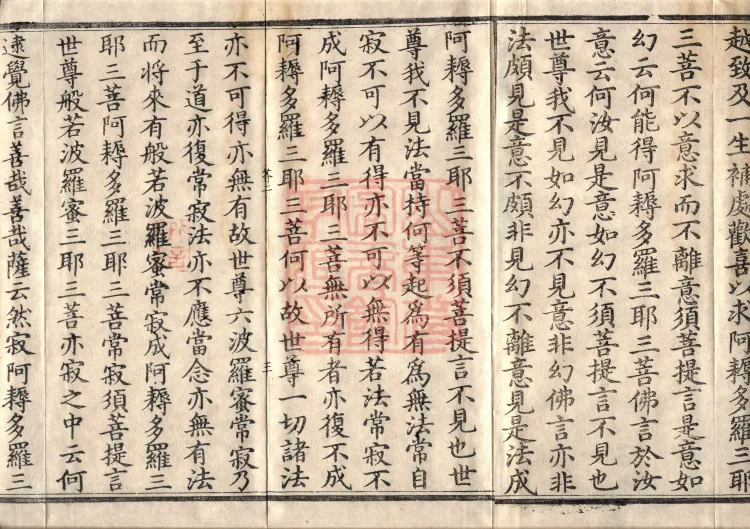 越致及一生補處歡喜以求阿耨多羅三耶
三菩不以意求而不離意須菩提言是意如
幻云何能得阿耨多羅三耶三菩佛言於汝
意云何汝見是意如幻不須菩提言不見也
世尊我不見如幻亦不見意非幻佛言亦非
法頗見是意不頗非見幻不離意見是法成
阿耨多羅三耶三菩不須菩提言不見也世
尊我不見法當持何等起爲有爲無法常自
寂不可以有得亦不可以無得若法常寂不
成阿耨多羅三耶三菩無所有者亦復不成
阿耨多羅三耶三菩何以故世尊一切諸法
三
亦不可得亦無有故世尊六波羅蜜常寂乃
至于道亦復常寂法亦不應當念亦無有法
而將來有般若波羅蜜常寂成阿耨多羅三
耶三菩阿耨多羅三耶三菩常寂須菩提言
世尊般若波羅蜜三耶三菩亦寂之中云何
逮覺佛言善哉善哉薩云然寂阿耨多羅三